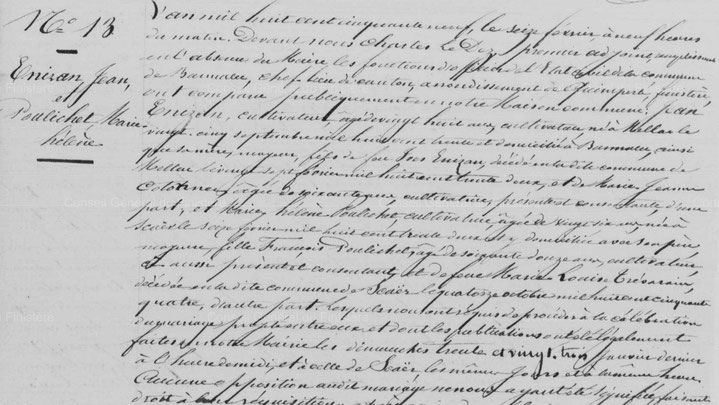 N° 13
Enizan, Jean,
et
Poulichet Marie
hélène
L'an mil huit cent cinquante neuf, le seize février, à neuf heures
du matin. Devant nous Charles Le Dez, premier adjoint, remplissant
en l'absence du Maire, les fonctions d'officier de l'Etat civil de la commune
de Bannalec, chef lieu de canton, arrondissement de Quimperlé, finistère,
ont comparu publiquement en notre Maison commune: Jean
Enizan, cultivateur, âgé de vingt huit ans, cultivateur, né à Mellac le
vingt-cinq septembre mil huit cent trente et domicilié à Bannalec, ainsi
que sa mère, majeur, fils de feu Yves Enizan, décédé en la dite commune de
Mellac le septembre mil huit cent trente deux, et de Marie Jeanne
âgée de soixante ans, cultivatrice, présente et consentante, d'une
part, et Marie hélène Poulichet, cultivatrice, âgée de vingt six ans, née à
Scaër le seize février mil huit cent trente deux et y domiciliée avec son père
majeure, fille François Poulichet, âgé de soixante douze ans, cultivateur,
aussi présent et consentant, et de feue Marie Louise
décédée en la dite commune de Scaër le quatorze octobre mil huit cent cinquante
quatre, d'autre part. lesquels nous ont requis de procéder à la célébration
du mariage projeté entre eux et dont les publications ont été légalement
faites en notre Mairie les dimanches trente et vingt-trois Janvier dernier
à l'heure de midi, et à celle de Scaër, les mêmes jours et à la même heure.
Aucune opposition audit mariage ne nous ayant été signifiée, faisant
droit à leur réquisition
Conseil Général
Finistère